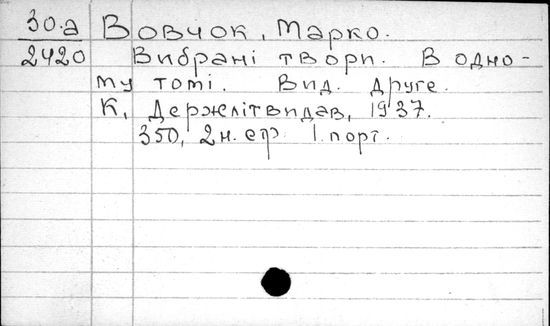 30.а Вовчок, Марко.
2420 Вибрані твори. В одно-
му томі. Вид. друге.
К, Держлітвидав, 1937.
350, 2 н. стр. 1 порт.